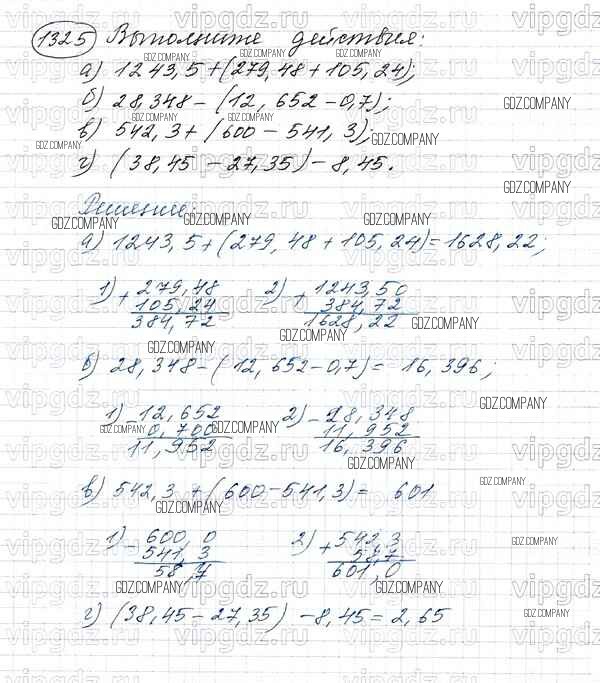 1325 Выполните действия:
а) 1243,5+(279,48+105,24);
б) 28,348-(12,652-0,7);
в) 542,3+(600-541,3);
г) (38,45-27,35)-8,45.
Решение:
а) 1243,5+(279,48+105,24)=1628,22;
1) + 279,48 2) + 1243,50
105,24 384,72
384,72 1628,22
б) 28,348-(12,652-0,7)= 16,396;
1) - 12,652 2) - 28,348
0,700 11,952
11,952 16,396
в) 542,3+(600-541,3)= 601
1) - 600,0 2) + 542,3
541,3 58,7
58,7 601,0
г) (38,45-27,35)-8,45=2,65
vipgdz.ru
GDZ.COMPANY